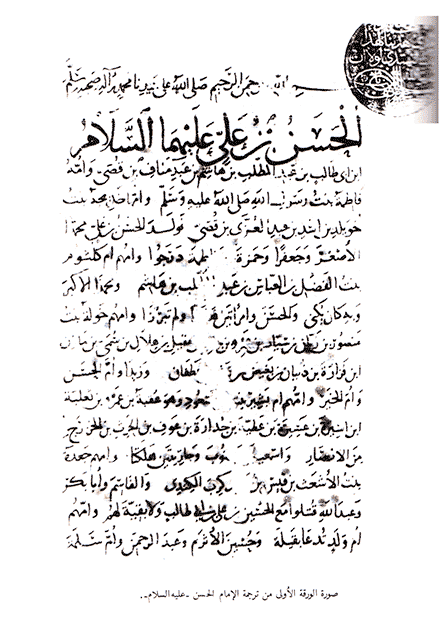 بسم الله الرحمن الرحيم صلى الله على سيدنا محمد وآله وصحبه وسلم
الحسن بن علي عليهما السلام
ابن ابي طالب بن عبد المطلب بن هاشم بن عبد مناف بن قصي وامه
فاطمة بنت رسول الله صلى الله عليه وسلم وامها خديجة بنت
خويلد بن اسد بن عبد العزى بن قصي فولد الحسن بن علي محمدا
الاصغر وجعفرا وحمزة وفاطمة درجوا وامهم ام كلثوم
بنت الفضل بن العباس بن عبد المطلب بن هاشم ومحمدا الاكبر
وبه كان يكنى والحسن وامراتين هلكتا ولم تبرزا وامهم خولة بنت
منظور بن زبان بن سيار بن عمرو بن جابر بن عقيل بن هلال بن سمي بن مازن
ابن فزارة بن ذبيان بن بغيض بن غطفان وزيدا وام الحسن
وام الخير وامهم ام بشير بنت ابي مسعود وهو عقبة بن عمرو بن ثعلبة
ابن اسيرة بن عسيرة بن عطية بن جدارة بن عوف بن الحرث بن الخزرج
من الانصار واسمعيل ويعقوب وجاريتين هلكتا وامهم جعدة
بنت الاشعث بن قيس بن معدي كرب الكندي والقاسم وابا بكر
وعبد الله قتلوا مع الحسين بن علي بن ابي طالب ولا بقية لهم وامهم
ام ولد تدعا بقيلة وحسين الاثرم وعبد الرحمن وام سلمة
صورة الورقة الأولى من ترجمة الإمام الحسن -عليه السلام-..